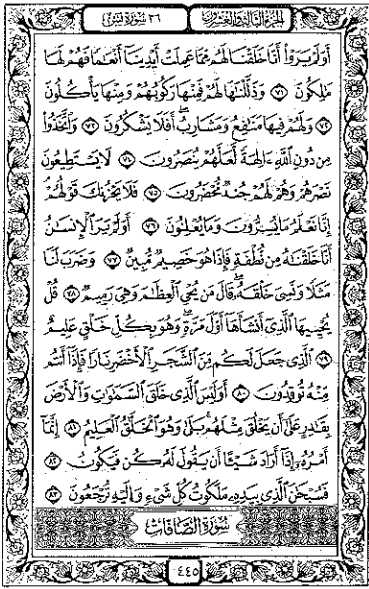 الجزء الثالث والعشرون ٣٦ سورة يس
أَوَلَمْ يَرَوْا۟ أَنَّا خَلَقْنَا لَهُم مِّمَّا عَمِلَتْ أَيْدِينَآ أَنْعَٰمًا فَهُمْ لَهَا
مَٰلِكُونَ ٧١ وَذَلَّلْنَٰهَا لَهُمْ فَمِنْهَا رَكُوبُهُمْ وَمِنْهَا يَأْكُلُونَ
٧٢ وَلَهُمْ فِيهَا مَنَٰفِعُ وَمَشَارِبُ ۖ أَفَلَا يَشْكُرُونَ ٧٣ وَٱتَّخَذُوا۟
مِن دُونِ ٱللَّهِ ءَالِهَةً لَّعَلَّهُمْ يُنصَرُونَ ٧٤ لَا يَسْتَطِيعُونَ
نَصْرَهُمْ وَهُمْ لَهُمْ جُندٌ مُّحْضَرُونَ ٧٥ فَلَا يَحْزُنكَ قَوْلُهُمْ ۘ
إِنَّا نَعْلَمُ مَا يُسِرُّونَ وَمَا يُعْلِنُونَ ٧٦ أَوَلَمْ يَرَ ٱلْإِنسَٰنُ
أَنَّا خَلَقْنَٰهُ مِن نُّطْفَةٍ فَإِذَا هُوَ خَصِيمٌ مُّبِينٌ ٧٧ وَضَرَبَ لَنَا
مَثَلًا وَنَسِىَ خَلْقَهُۥ ۖ قَالَ مَن يُحْىِ ٱلْعِظَٰمَ وَهِىَ رَمِيمٌ ٧٨ قُلْ
يُحْيِيهَا ٱلَّذِىٓ أَنشَأَهَآ أَوَّلَ مَرَّةٍ ۖ وَهُوَ بِكُلِّ خَلْقٍ عَلِيمٌ
٧٩ ٱلَّذِى جَعَلَ لَكُم مِّنَ ٱلشَّجَرِ ٱلْأَخْضَرِ نَارًا فَإِذَآ أَنتُم
مِّنْهُ تُوقِدُونَ ٨٠ أَوَلَيْسَ ٱلَّذِى خَلَقَ ٱلسَّمَٰوَٰتِ وَٱلْأَرْضَ
بِقَٰدِرٍ عَلَىٰٓ أَن يَخْلُقَ مِثْلَهُم ۚ بَلَىٰ وَهُوَ ٱلْخَلَّٰقُ ٱلْعَلِيمُ ٨١ إِنَّمَآ
أَمْرُهُۥٓ إِذَآ أَرَادَ شَيْـًٔا أَن يَقُولَ لَهُۥ كُن فَيَكُونُ ٨٢
فَسُبْحَٰنَ ٱلَّذِى بِيَدِهِۦ مَلَكُوتُ كُلِّ شَىْءٍ وَإِلَيْهِ تُرْجَعُونَ ٨٣
سُورَةُ الصَّافَّاتِ
٤٤٥